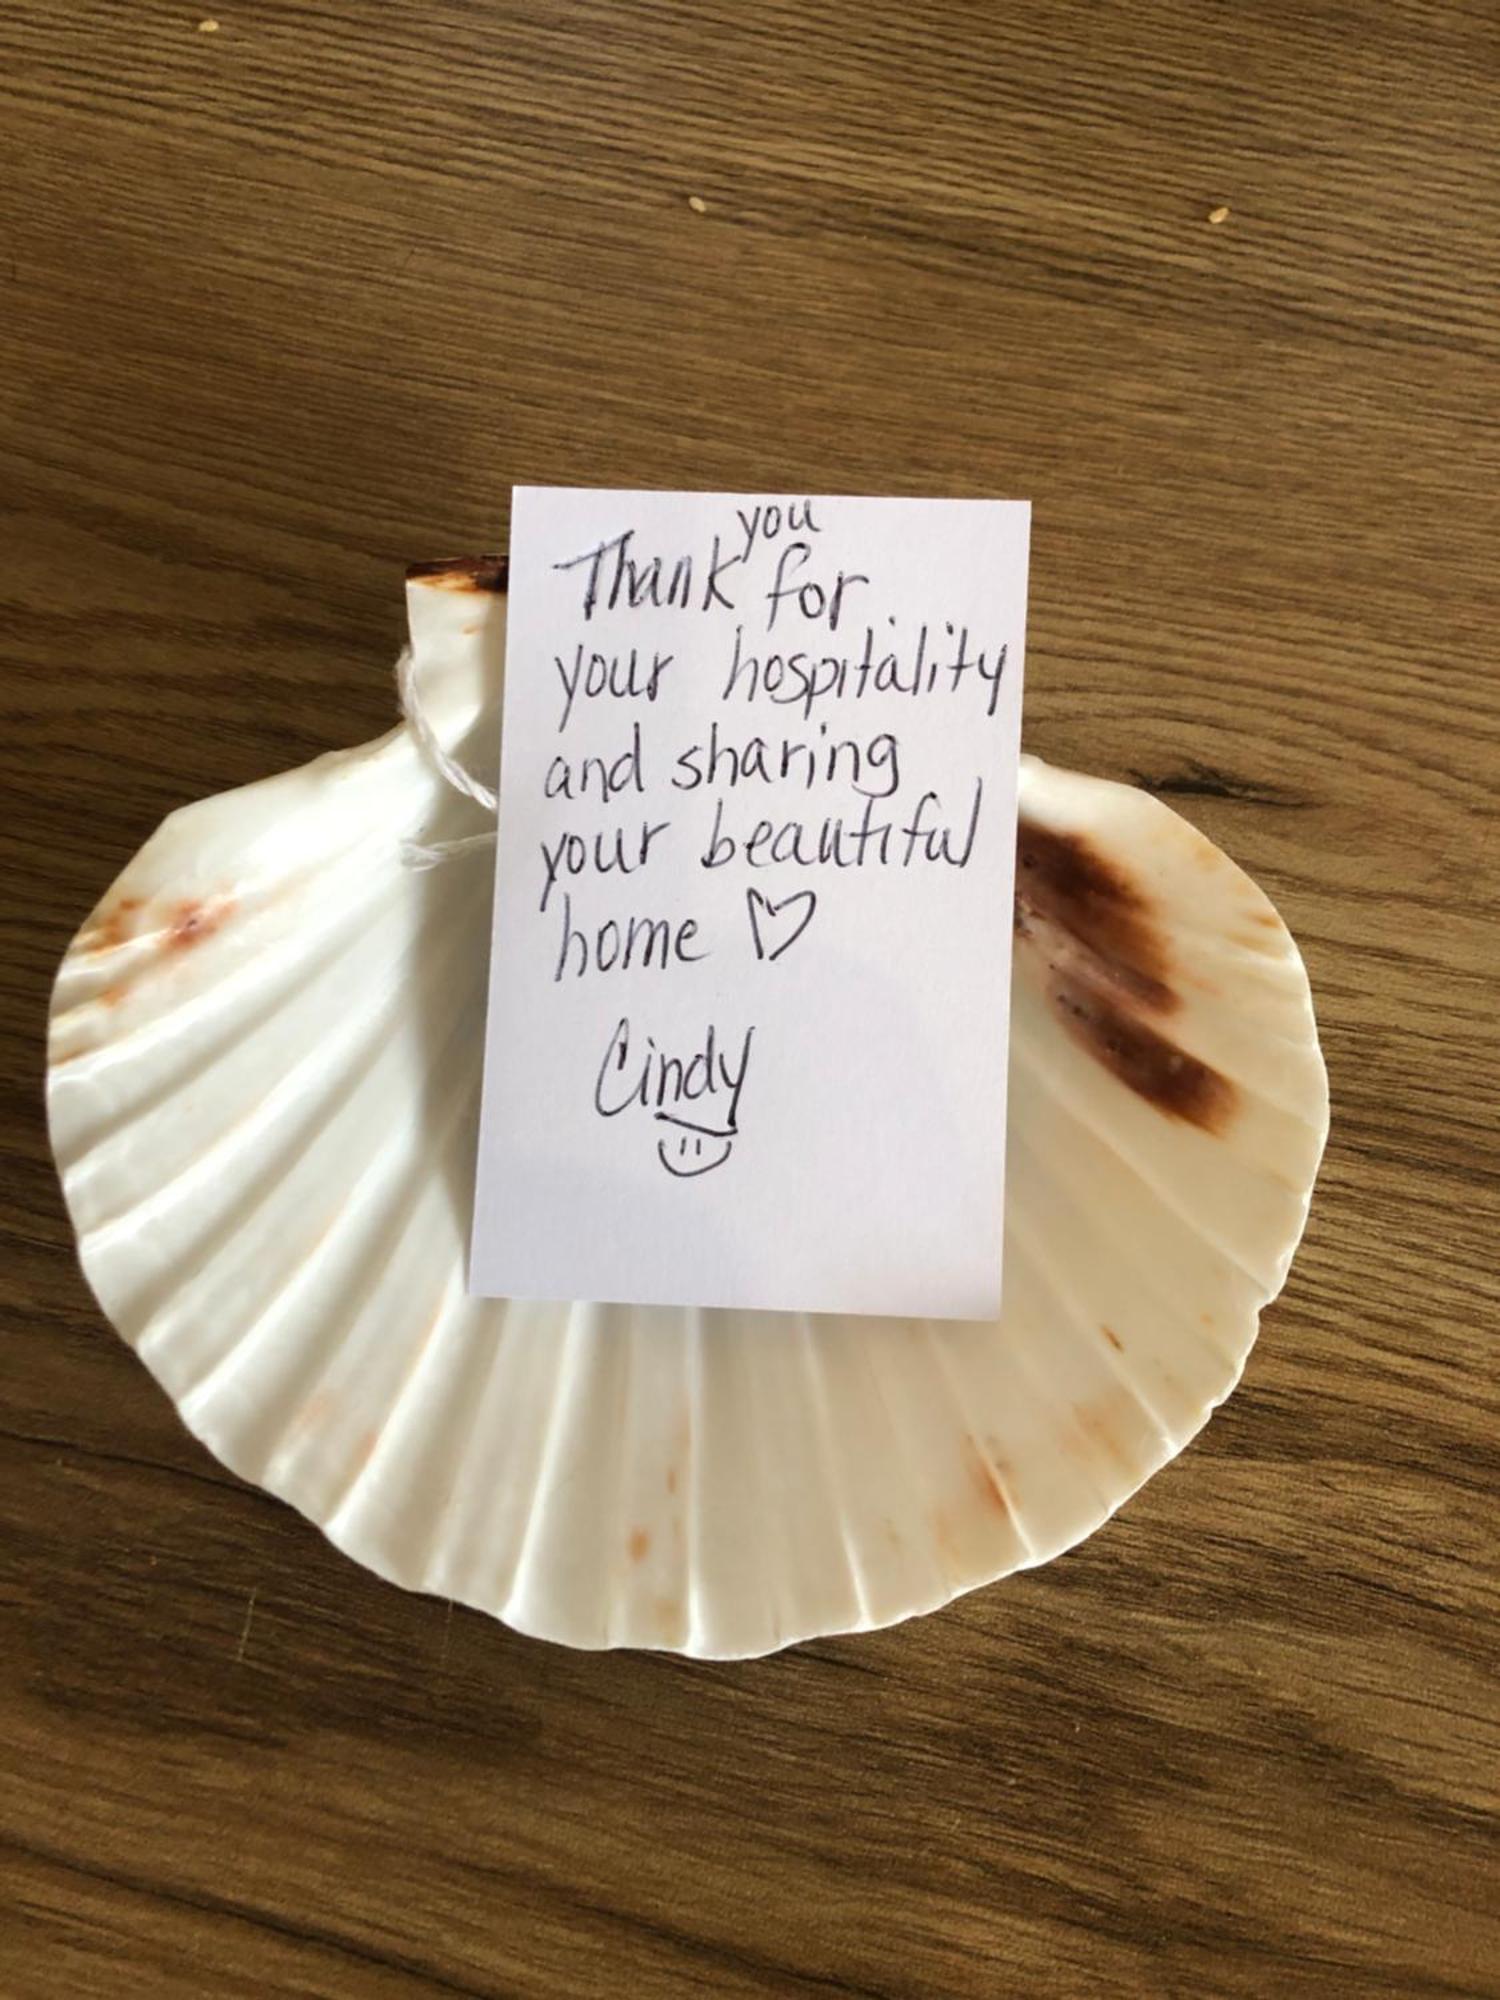 Thank you for
your hospitality
and sharing
your beautiful
home ♡
Cindy